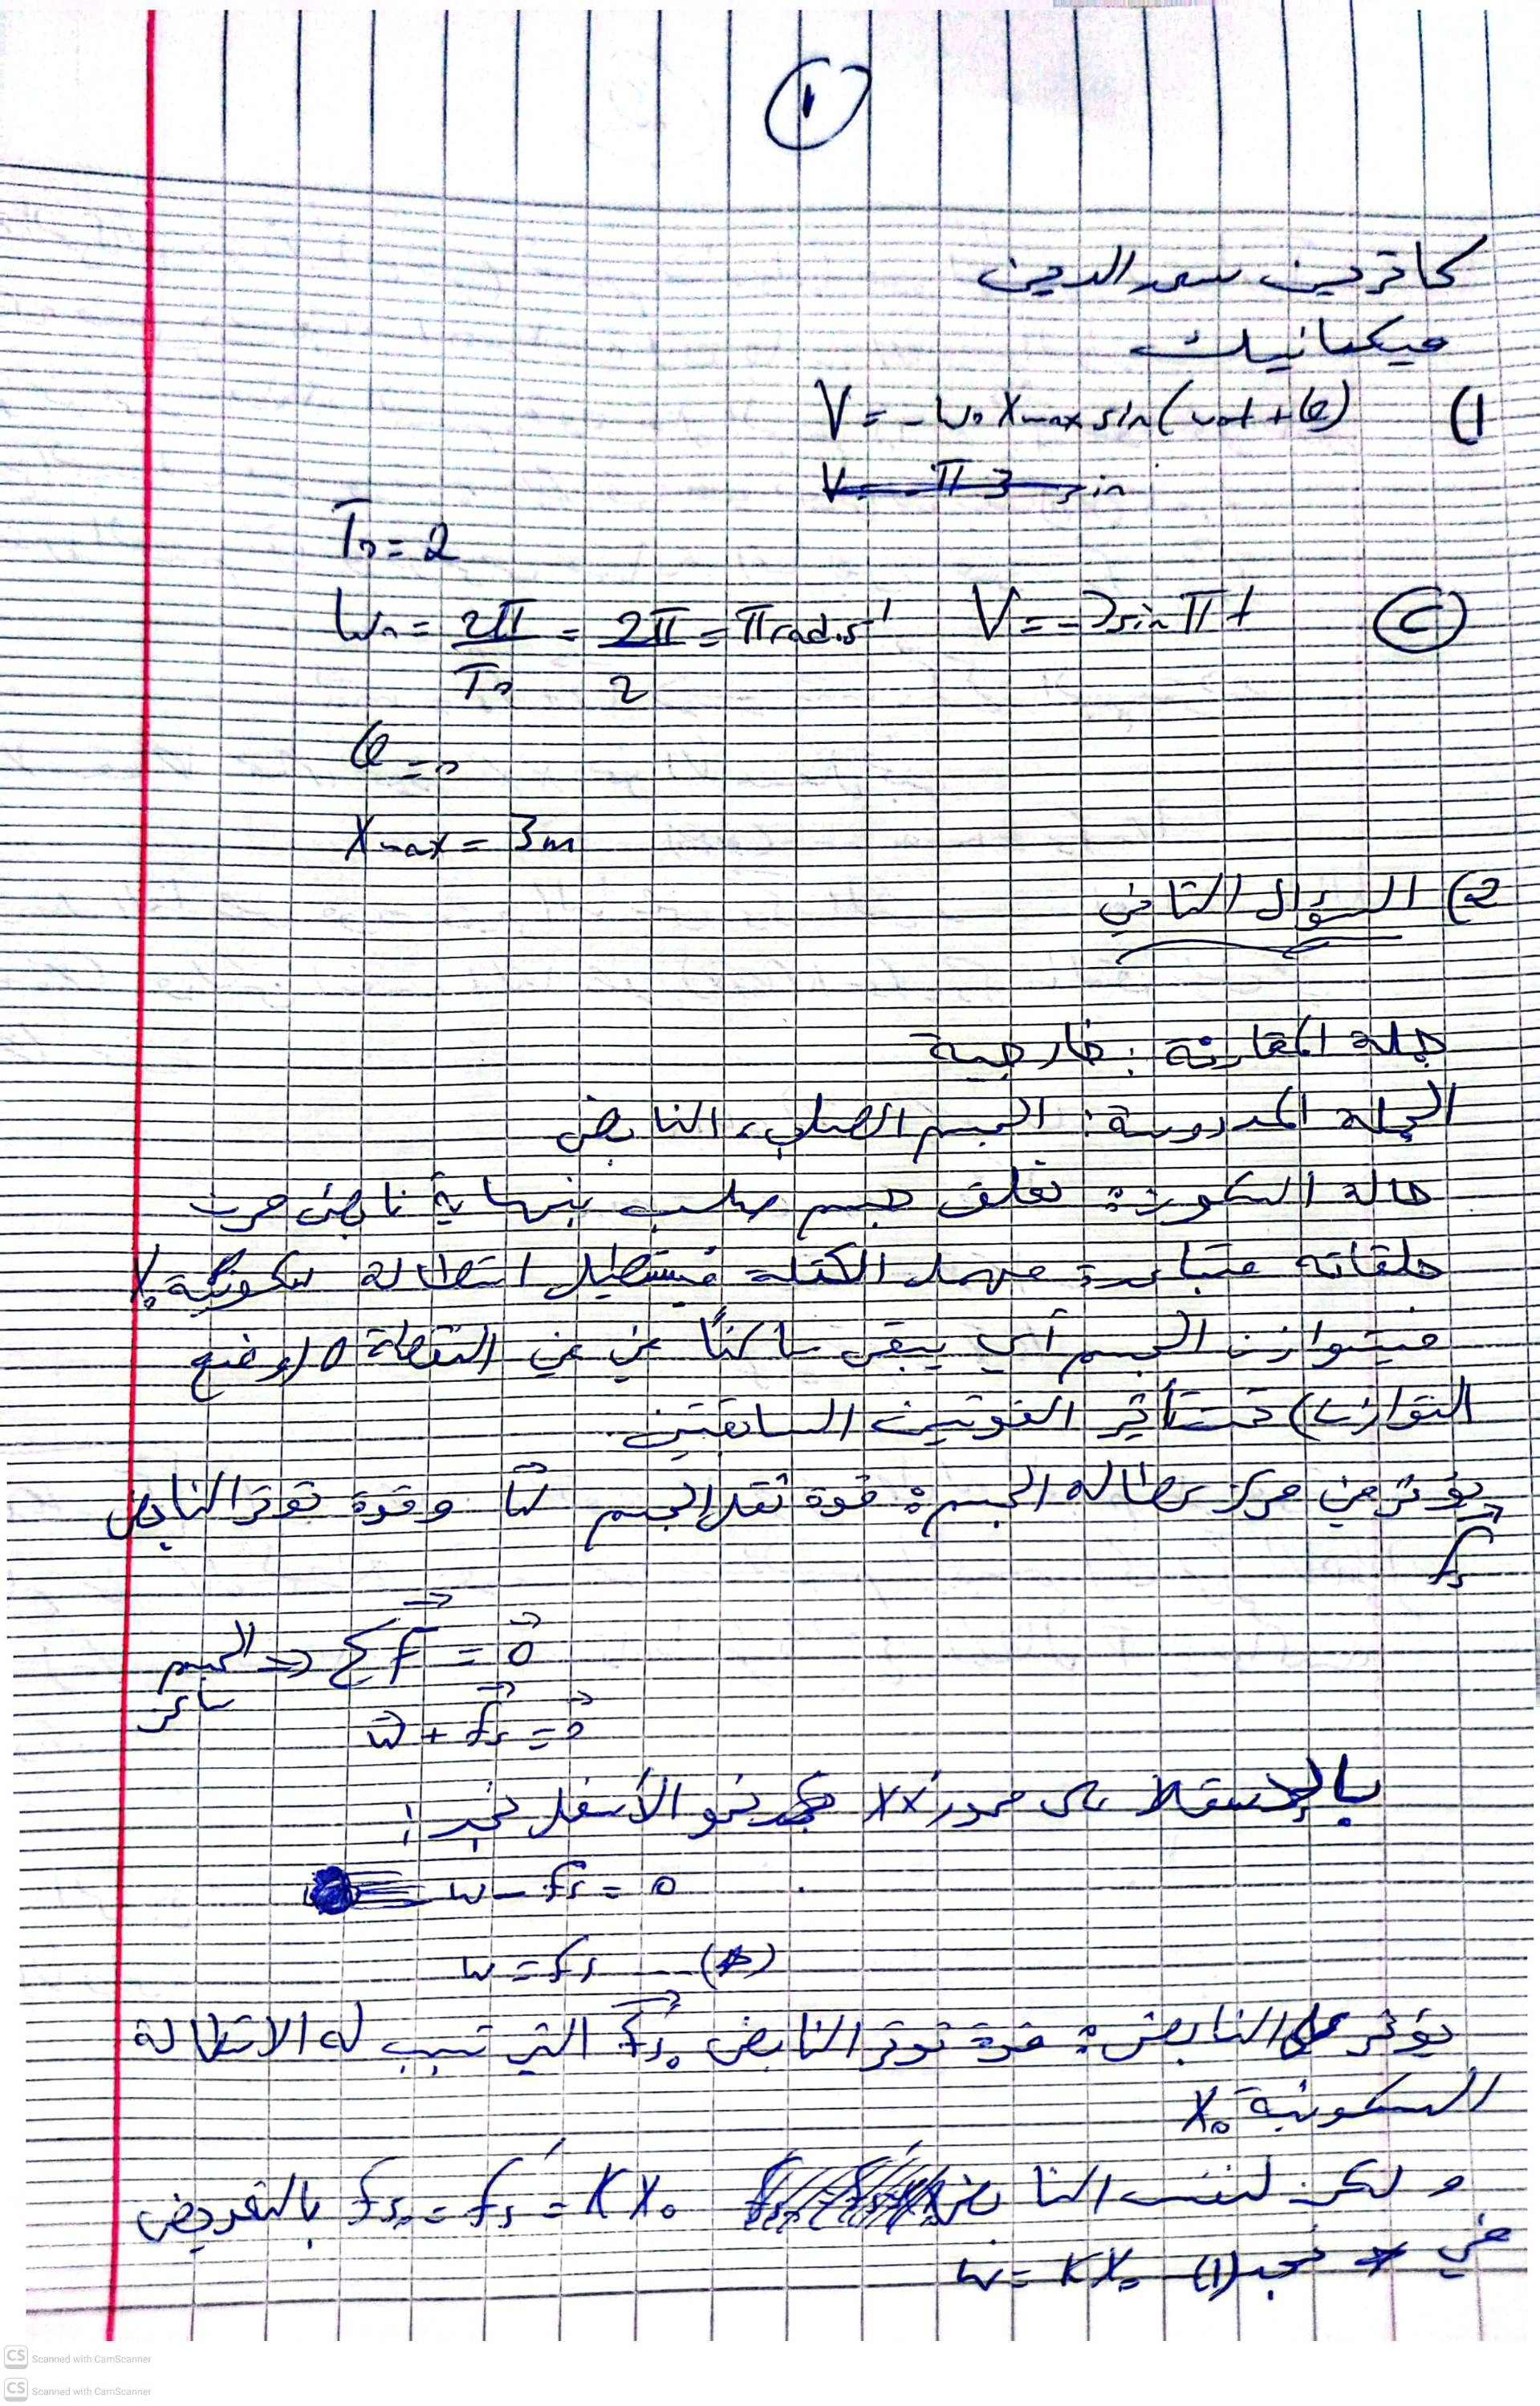 ١
كاترين سعد الدين
ميكانيك
1) V = -ω₀ Xmax sin(ω₀t + φ)
V = -π 3 sin
T₀ = 2
ω₀ = 2π/T₀ = 2π/2 = π rad.s⁻¹ V = -3 sin πt (C)
φ = 0
Xmax = 3m
2) السؤال الثاني
جملة المقارنة: خارجية
الجملة المدروسة: الجسم الصلب، النابض
حالة السكون: نعلق جسم صلب بنهاية نابض مرن
حلقاته متباعدة مهمل الكتلة فيستطيل استطالة سكونية X₀
فيتوازن الجسم أي يبقى ساكناً في النقطة O (وضع
التوازن) تحت تأثير القوتين السابقتين
يؤثر في مركز عطالة الجسم: قوة ثقل الجسم و قوة توتر النابض
fs
الجسم ساكن ⇐ Σ F = 0
w + fs = 0
بالإسقاط على محور xx' نحو الأسفل نجد:
w - fs = 0
w = fs ... (*)
يؤثر على النابض: قوة توتر النابض fs₀' التي تسبب له الاستطالة
السكونية X₀
ولكن لنفس النابض fs₀ = fs' = K X₀ بالتعويض
في * نجد (1) w = K X₀
Scanned with CamScanner
Scanned with CamScanner